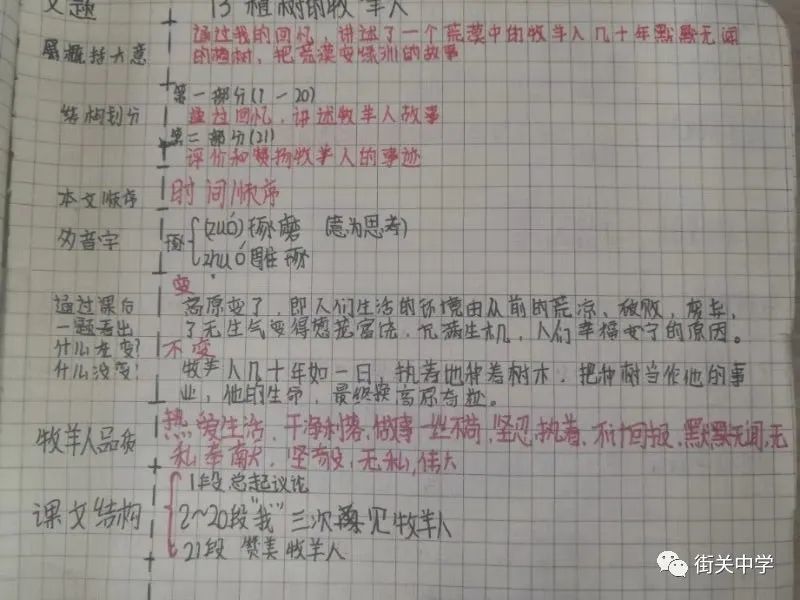 文题 13 植树的牧羊人
通过我的回忆，讲述了一个荒漠中的牧羊人几十年默默无闻
概括大意 的植树，把荒漠变绿洲的故事
第一部分(1-20)
结构划分 通过回忆，讲述牧羊人故事
第二部分(21)
评价和赞扬牧羊人的事迹
本文顺序 时间顺序
多音字 琢 (zuó)琢磨 (意为思考)
zhuó雕琢
变
通过课后 高原变了，即人们生活的环境由从前的荒凉、破败，废弃，
一题看出 了无生气变得葱茏富饶，充满生机，人们幸福安宁的原因。
什么在变? 不变
什么没变! 牧羊人几十年如一日，执着地种着树木，把种树当作他的事
业，他的生命，最终 高原奇迹。
牧羊人品质 热爱生活，干净利落，做事一丝不苟，坚忍，执着，不计回报，默默无闻，无
私奉献，坚 ，无私，伟大
1段总起议论
课文结构 2~20段"我"三次 见牧羊人
21段 赞美牧羊人
街关中学